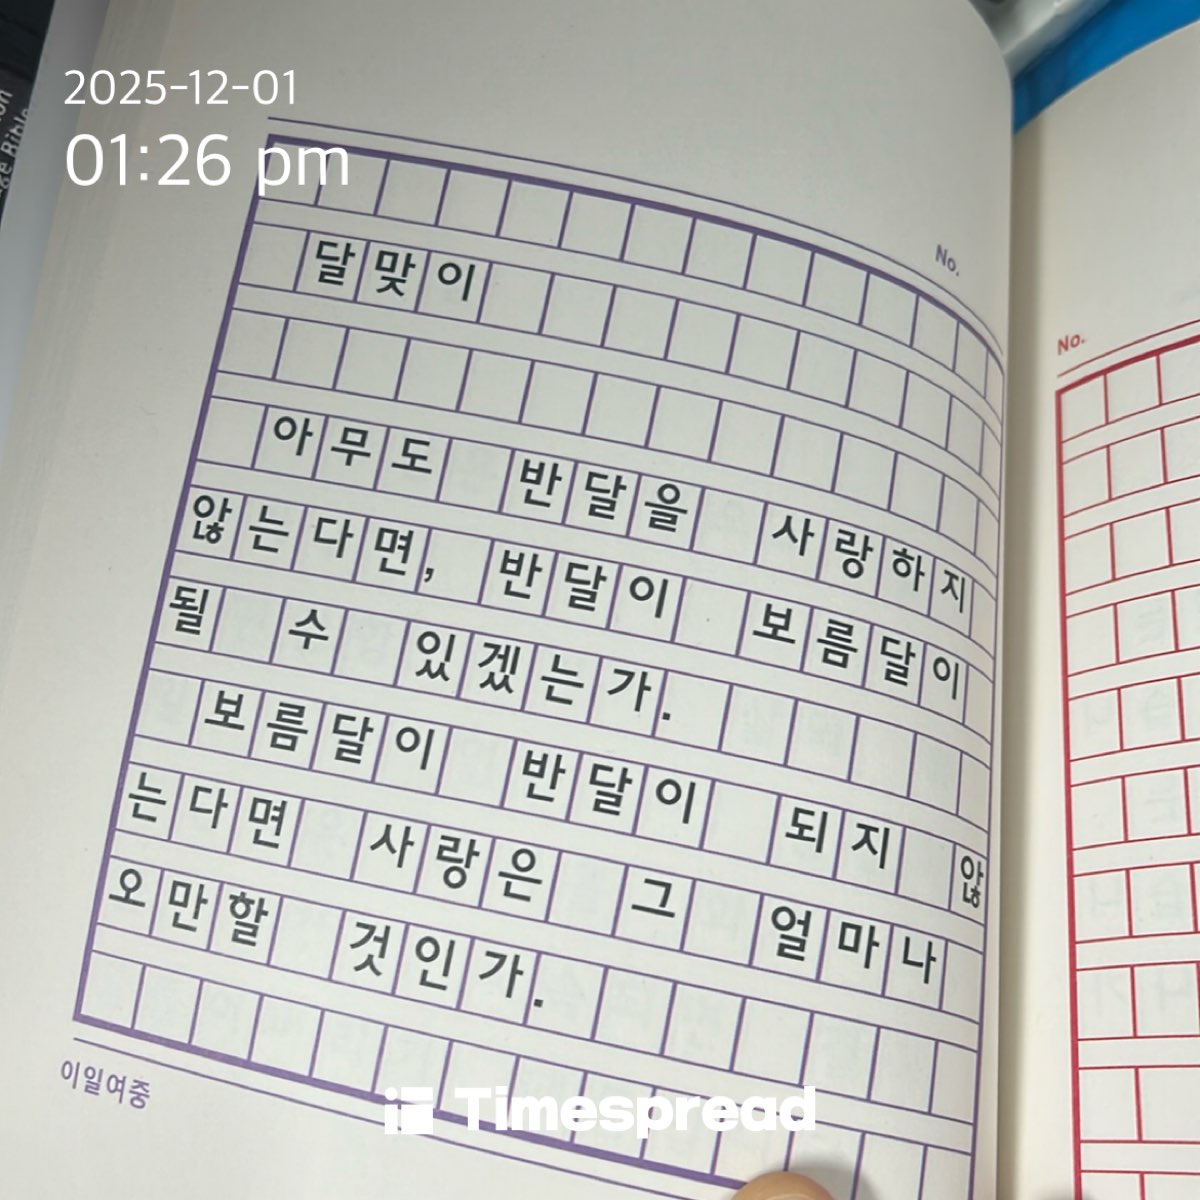 2025-12-01
01:26 pm
No.
달맞이
아무도 반달을 사랑하지
않는다면, 반달이 보름달이
될 수 있겠는가.
보름달이 반달이 되지 않
는다면 사랑은 그 얼마나
오만할 것인가.
이일여중
No.
Timespread